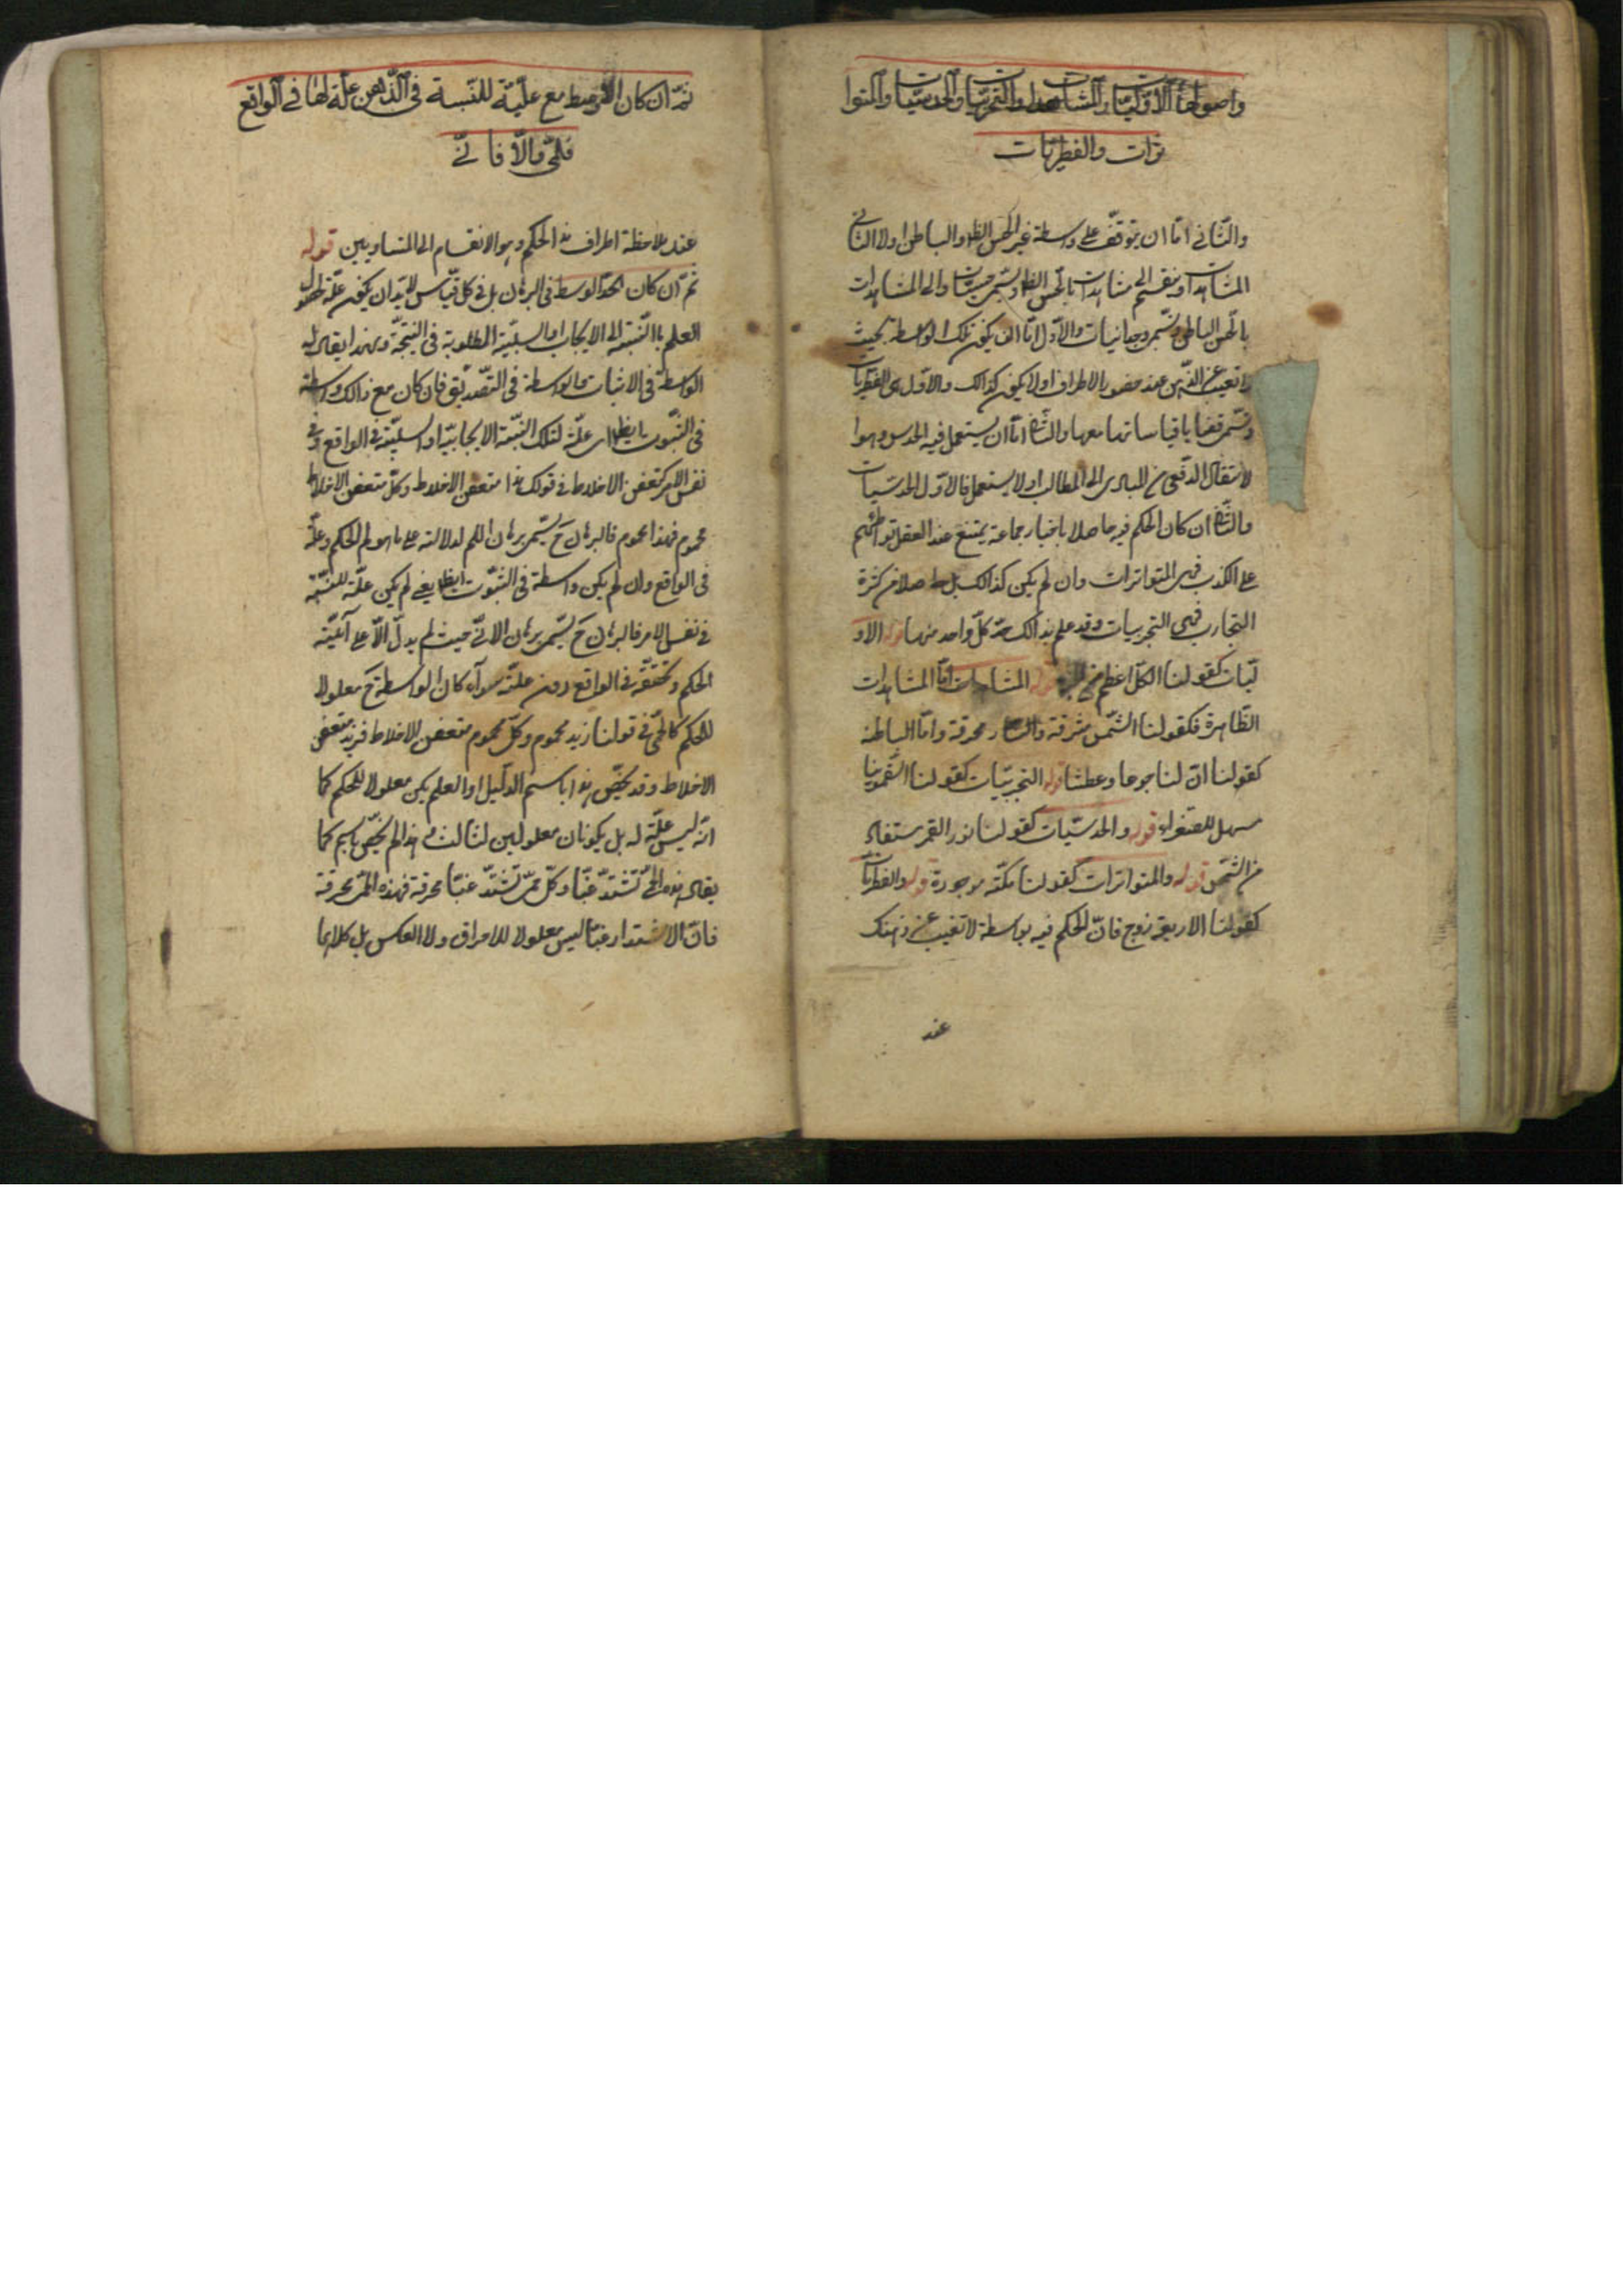 واصولها الاوّليّات والمشاهدات والتجربيّات والحدسيّات والمتوا
ترات والفطريّات
والثّاني امّا ان يتوقّف على واسطة غير الحسّ الظاهر والباطن اولا الثّاني
المشاهدات وينقسم الى مشاهدات بالحسّ الظاهر وتسمّى حسيّات والى المشاهدات
بالحسّ الباطن وتسمّى وجدانيات والاوّل امّا ان يكون تلك الواسطة بحيث
لا تغيب عن الذّهن عند حضور الاطراف اولا يكون كذالك والاوّل هى الفطريّات
وتسمّى قضايا قياساتها معها والثّانى امّا ان يستعمل فيه الحدس وهوا
لانتقال الدّفعى من المبادى الى المطالب اولا يستعمل فالاوّل الحدسيّات
والثّانى ان كان الحكم فيه حاصلا باخبار جماعة يمتنع عند العقل تواطئهم
على الكذب فهى المتواترات وان لم يكن كذالك بل حاصلا من كثرة
التجارب فهى التجربيات وقد علم بذالك حدّ كلّ واحد منها قوله الاو
ليّات كقولنا الكلّ اعظم من الجزء قوله المشاهدات امّا المشاهدات
الظّاهرة فكقولنا الشّمس مشرقة والنّار محرقة وامّا الباطنة
كقولنا انّ لنا جوعا وعطشا قوله التجربيّات كقولنا السّقمونيا
مسهل للصفراء قوله والحدسيّات كقولنا نور القمر مستفاد
من الشّمس قوله والمتواترات كقولنا مكّة موجودة قوله والفطريّات
كقولنا الاربعة زوج فانّ الحكم فيه بواسطة لا تغيب عن ذهنك
عند
ثمّ ان كان الاوسط مع علّيّة للنّسبة فى الذّهن علّة لها فى الواقع
فلمّى والاّ فانّى
عند ملاحظة اطراف هذا الحكم وهو الانقسام الى المتساويين قوله
ثمّ ان كان الحدّ الوسط فى البرهان بل فى كل قياس لابدّ ان يكون علّة لحصول
العلم باالنّسبة الى الايجاب او السلبيّة المطلوبة فى النتيجة وبهذا يقال له
الواسطة فى الاثبات والواسطة فى التّصديق فان كان مع ذالك واسطة
فى الثّبوت ايضا اى علّة لتلك النّسبة الايجابيّة او السلبيّة فى الواقع وفى
نفس الامر كتعفن الاخلاط فى قولك هذا متعفن الاخلاط وكلّ متعفن الاخلاط
محموم فهذا محموم فالبرهان ح يسمّى برهان اللم لدلالته على ما هو لم الحكم وعلّته
فى الواقع وان لم يكن واسطة فى الثّبوت ايضا يعنى لم يكن علّة للنسبة
فى نفس الامر فالبرهان ح يسمّى برهان الانّى حيث لم يدلّ الاّ على انّيّة
الحكم وتحقّقه فى الواقع دون علّته سواء كان الواسطة ح معلولا
للحكم كالحمّى فى قولنا زيد محموم وكلّ محموم متعفن الاخلاط فزيد متعفن
الاخلاط وقد يخصّ هذا باسم الدّليل او لم يكن معلولا للحكم كما
انّه ليس علّة له بل يكونان معلولين لثالث و هذا لم يخصّ باسم كما
يقال هذه الحمّى تشتدّ غبّا وكلّ حمّى تشتدّ غبّا محرقة فهذه الحمّى محرقة
فانّ الاشتداد غبّا ليس معلولا للاحراق ولا العكس بل كلاهما